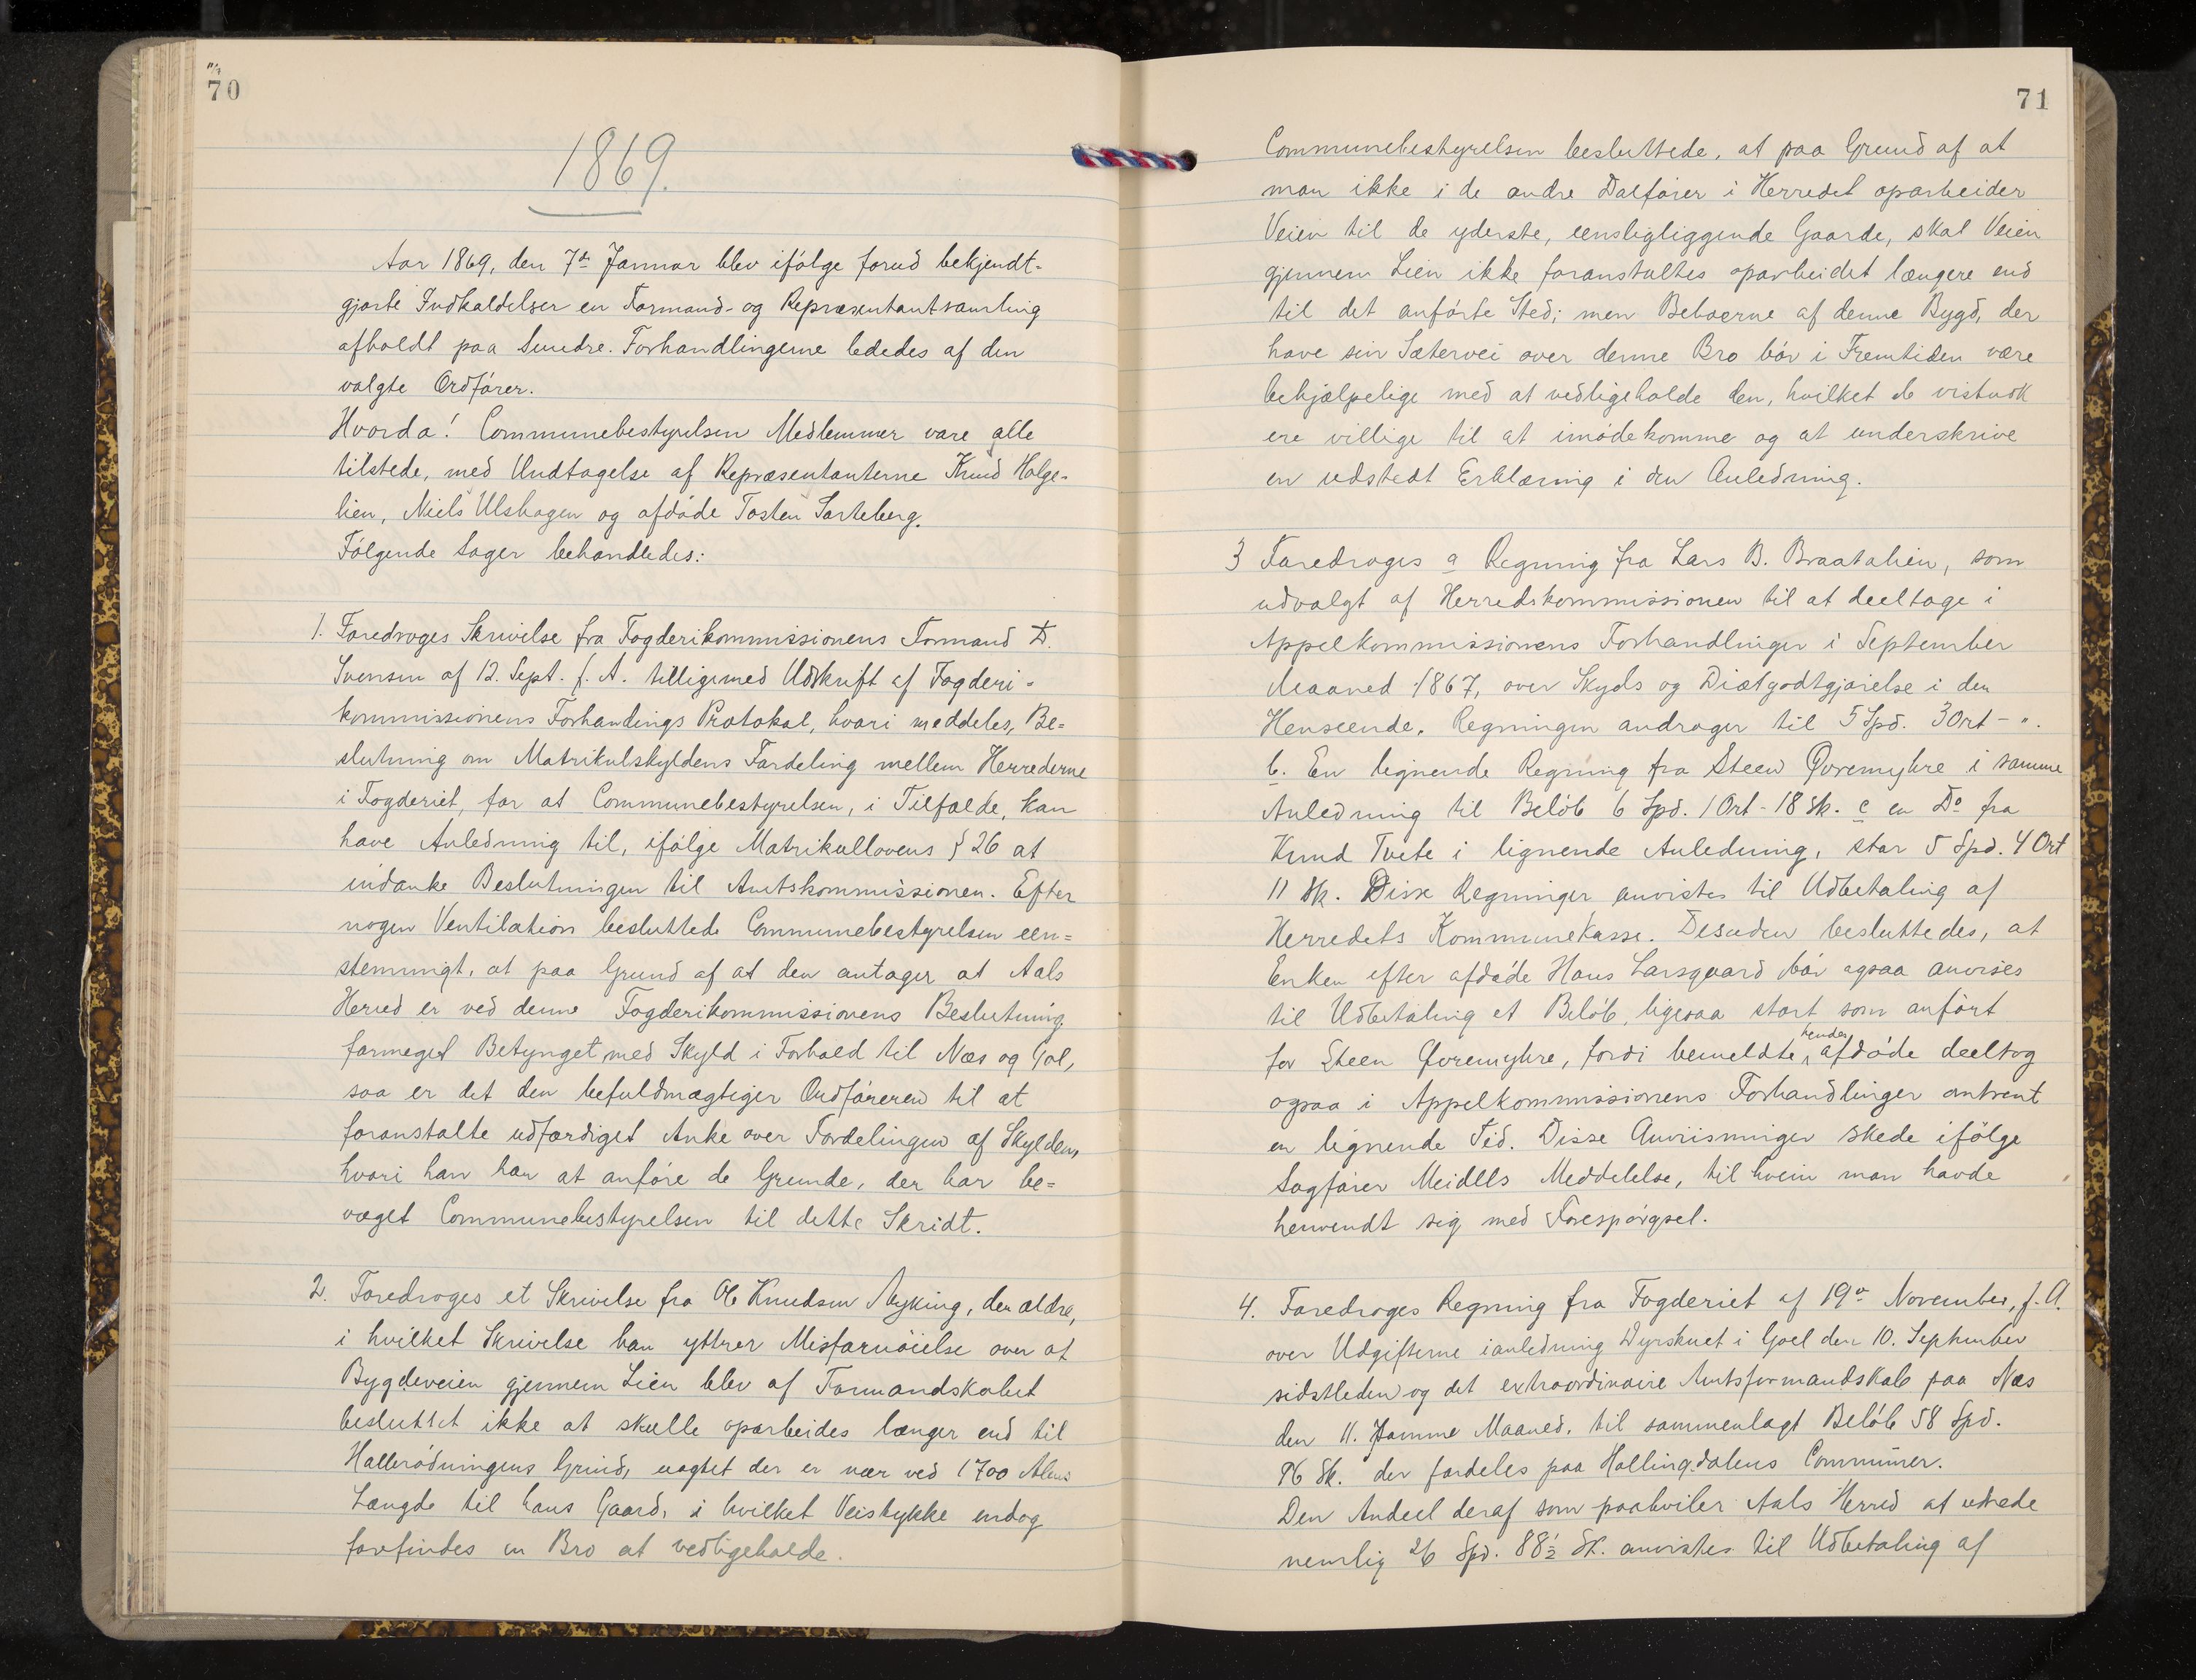 70
1869.
Aar 1869, den 7de Januar blev ifølge forud bekjendt-
gjorte Indkaldelser en Formand- og Repræsentantsamling
afholdt paa Sundre. Forhandlingerne lededes af den
valgte Ordfører.
Hvorda! Communebestyrelsen Medlemmer vare alle
tilstede, med Undtagelse af Repræsentanterne Knud Holge-
lien, Niels Ulshagen og afdøde Tosten Sorteberg.
Følgende Sager behandledes:
1. Foredroges Skrivelse fra Fogderikommissionens Formand D.
Svensen af 12. Sept. f. A. tilligemed Udskrift af Fogderi-
kommissionens Forhandlings Protokol, hvori meddeles, Be=
slutning om Matrikulskyldens Fordeling mellem Herrederne
i Fogderiet, for at Communebestyrelsen, i Tilfælde, kan
have Anledning til, ifølge Matrikullovens § 26 at
indanke Beslutningen til Amtskommissionen. Efter
nogen Ventilation besluttede Communebestyrelsen een=
stemmigt, at paa Grund af at den antager at Aals
Herred er ved denne Fogderikommissionens Beslutning
formeget Betynget med Skyld i Forhold til Næs og Gol,
saa er det den befuldmægtiger Ordføreren til at
foranstalte udfærdiget Anke over Fordelingen af Skylden,
hvori han har at anføre de Grunde, der har be=
væget Communebestyrelsen til dette Skridt.
2. Foredroges et Skrivelse fra Ole Knudsen Myking, den ældre,
i hvilket Skrivelse han yttrer Misfornøielse over at
Bygdeveien gjennem Lien blev af Formandskabet
besluttet ikke at skulle oparbeides længer end til
Hallerødningens Grind, uagtet der er nær ved 1700 Alens
Længde til hans Gaard, i hvilket Veistykke endog
forfindes en Bro at vedligeholde.
71
Communebestyrelsen besluttede, at paa Grund af at
man ikke i de andre Dalfører i Herredet oparbeider
Veien til de yderste, eensligliggende Gaarde, skal Veien
gjennem Lien ikke foranstaltes oparbeidet længere end
til det anførte Sted; men Beboerne af denne Bygd, der
have sin Sætervei over denne Bro bør i Fremtiden være
behjælpelige med at vedligeholde den, hvilket de vistnok
ere villige til at imødekomme og at underskrive
en udstedt Erklæring i den Anledning.
3 Foredroges a Regning fra Lars B. Braatalien, som
udvalgt af Herredskommissionen til at deeltage i
Appelkommissionens Forhandlinger i September
Maaned 1867, over Skyds og Diætgodtgjørelse i den
Henseende. Regningen andrager til 5 Spd. 3 Ort - ".
b. En lignende Regning fra Steen Qvremyhre i samme
Anledning til Beløb 6 Spd. 1 Ort - 18 Sk. c en Do fra
Knud Tveto i lignende Anledning, stor 5 Spd. 4 Ort
11 Sk. Disse Regninger anvistes til Udbetaling af
Herredets Kommunekasse. Desuden besluttedes, at
Enken efter afdøde Hans Larsgaard bør ogsaa anvises
til Udbetaling et Beløb, ligesaa stort som anført
for Steen Qvremyhre, fordi bemeldte hendes afdøde deeltog
ogsaa i Appelkommissionens Forhandlinger omtrent
en lignende Tid. Disse Anviisninger skede ifølge
Sagfører Meidells Meddelelse, til hvem man havde
henvendt sig med Forespørgsel.
4. Foredroges Regning fra Fogderiet af 19de November, f. A.
over Udgifterne ianledning Dyrskuet i Goel den 10. September
sidstleden og det extraordinaire Amtsformandskab paa Næs
den 11. samme Maaned, til sammenlagt Beløb 58 Spd.
86 Sk. der fordeles paa Hallingdalens Communer.
Den Andeel deraf som paahviler Aals Herred at udrede
nemlig 26 Spd. 88½ Sk. anvistes til Udbetaling af